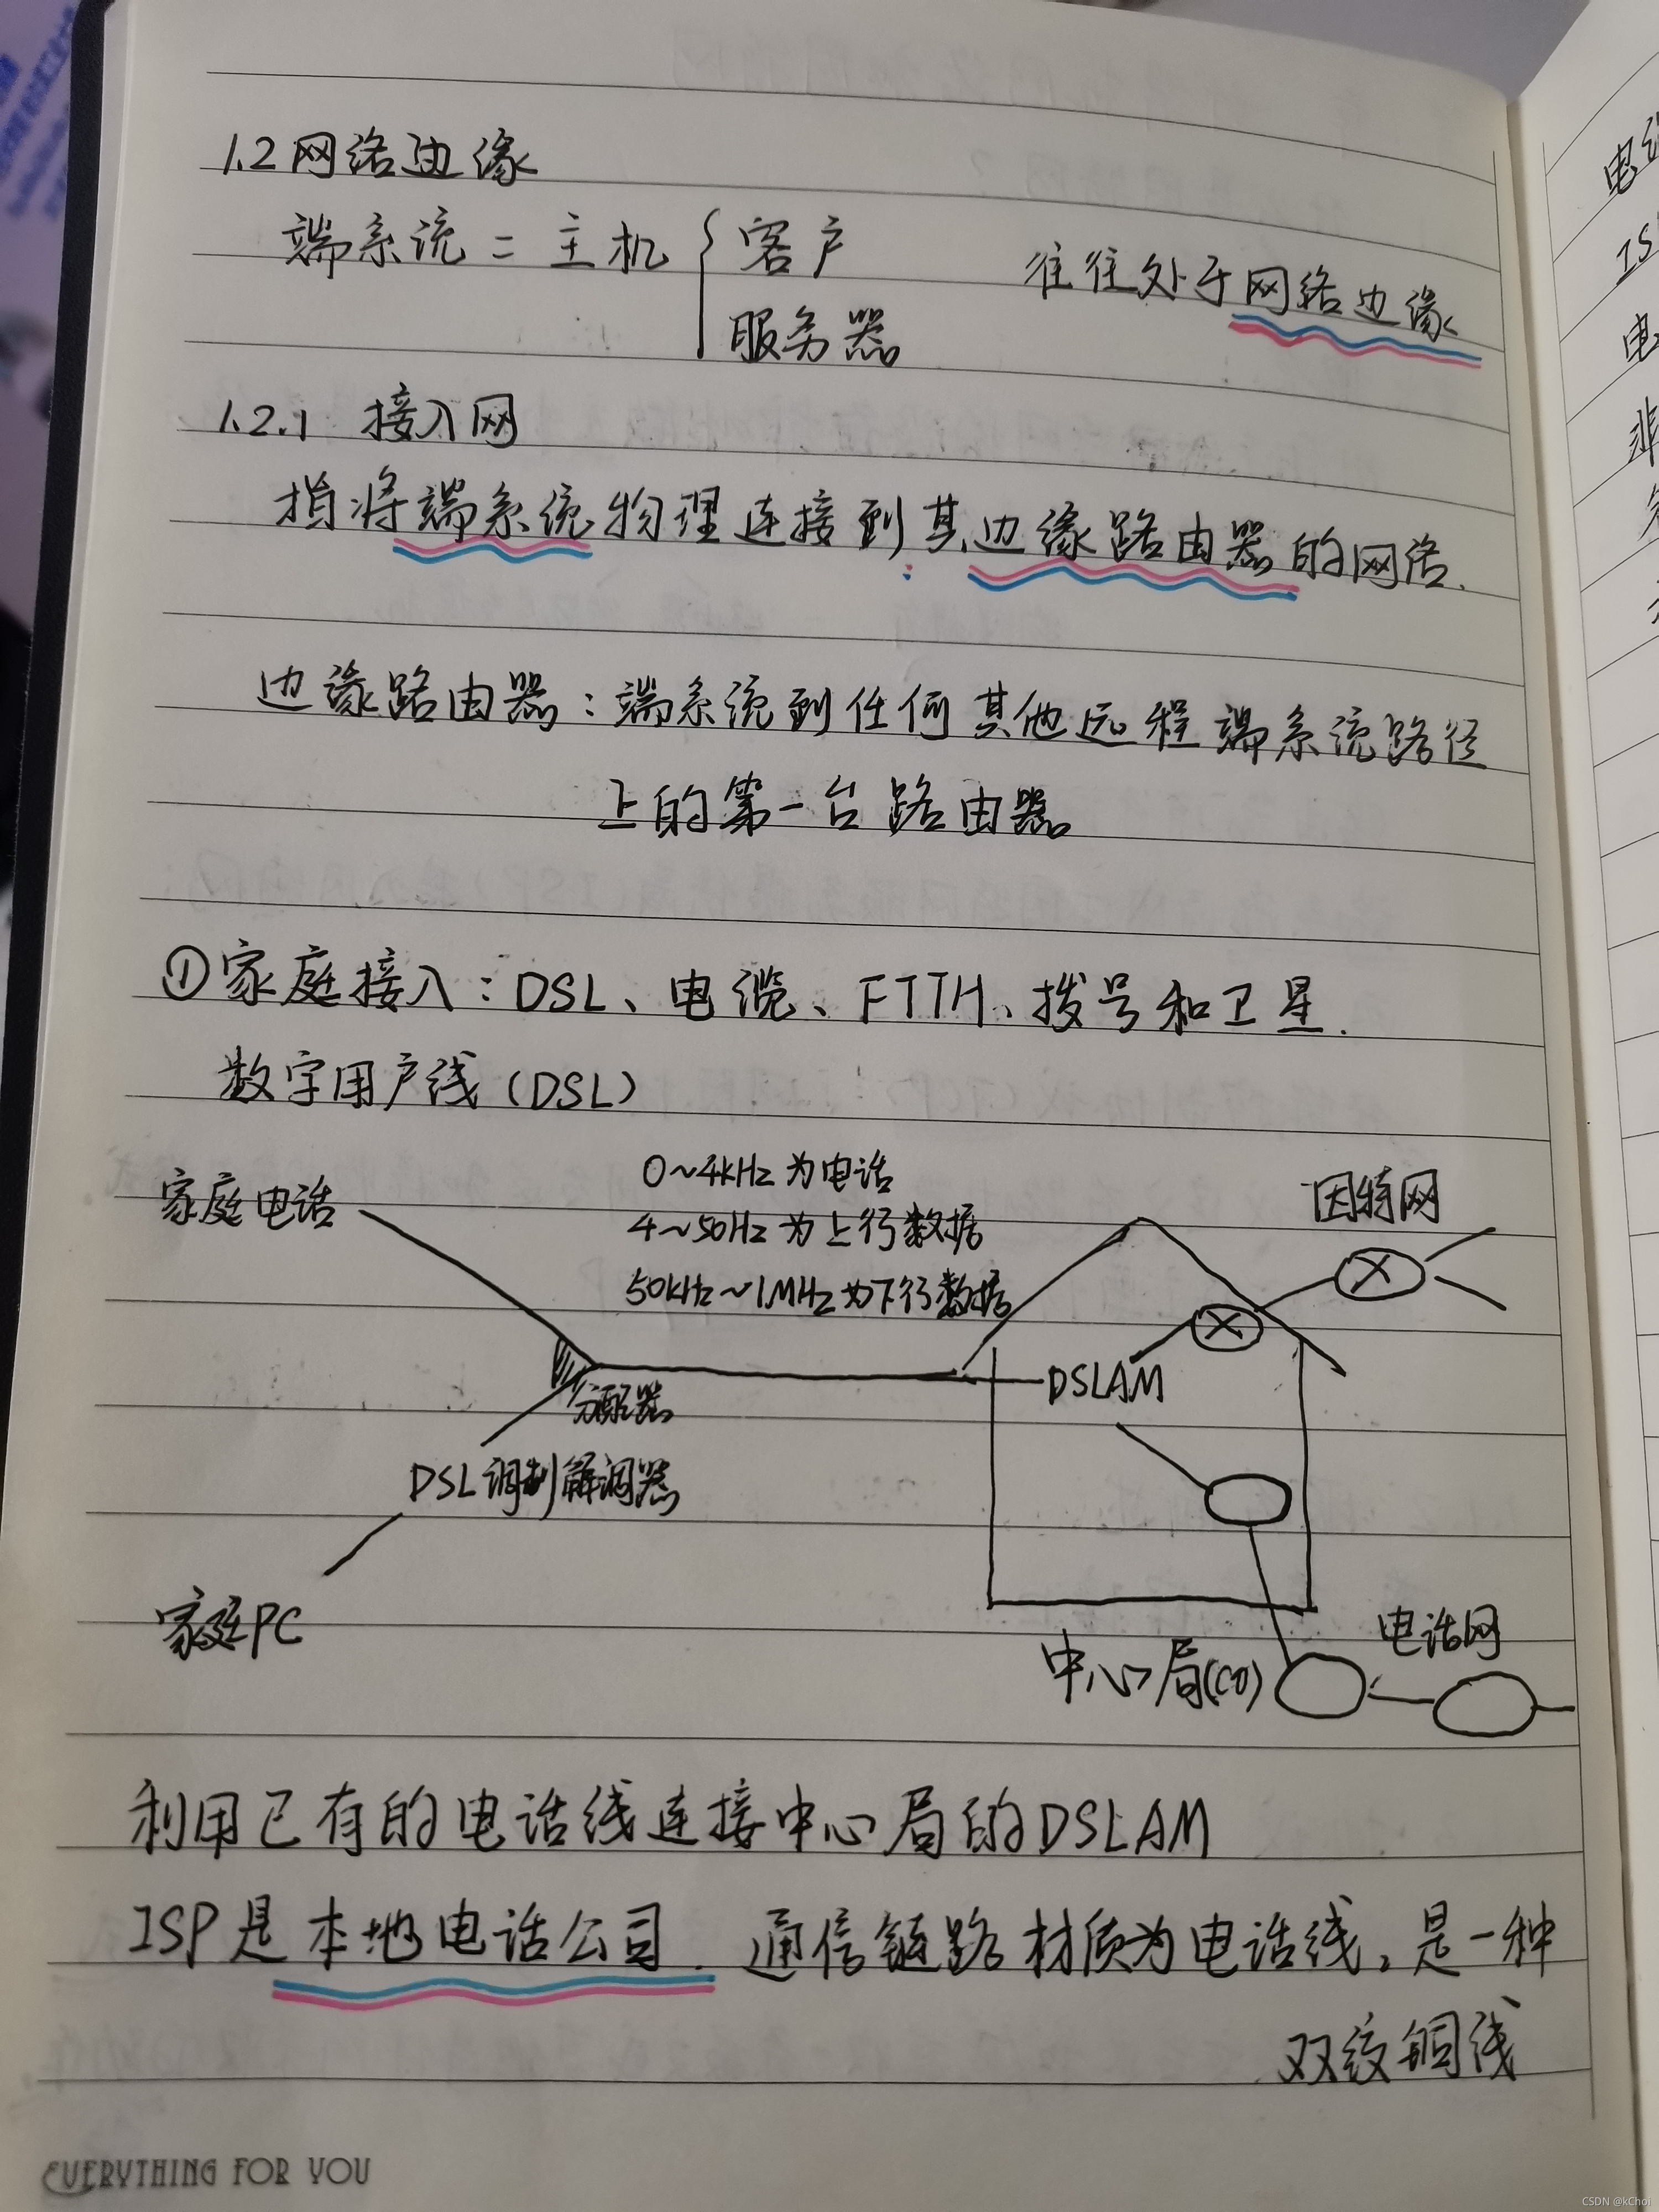 1.2 网络边缘
端系统 = 主机 { 客户
服务器
往往处于网络边缘
1.2.1 接入网
指将端系统物理连接到其边缘路由器的网络.
边缘路由器:端系统到任何其他远程端系统路径
上的第一台路由器
①家庭接入:DSL、电缆、FTTH、拨号和卫星.
数字用户线(DSL)
家庭电话
0~4kHz 为电话
4~50Hz 为上行数据
50kHz~1MHz 为下行数据
因特网
DSLAM
分配器
DSL调制解调器
家庭PC
中心局(CO)
电话网
利用已有的电话线连接中心局的DSLAM
ISP是本地电话公司. 通信链路材质为电话线,是一种
双绞铜线
EVERYTHING FOR YOU
CSDN @kChoi